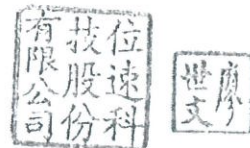 位速科
技股份
有限公司
廖
世文